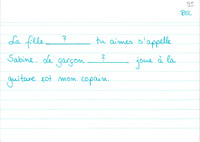 La fille ___?___ tu aimes s'appelle
Sabine. Le garçon ___?___ joue à la
guitare est mon copain.